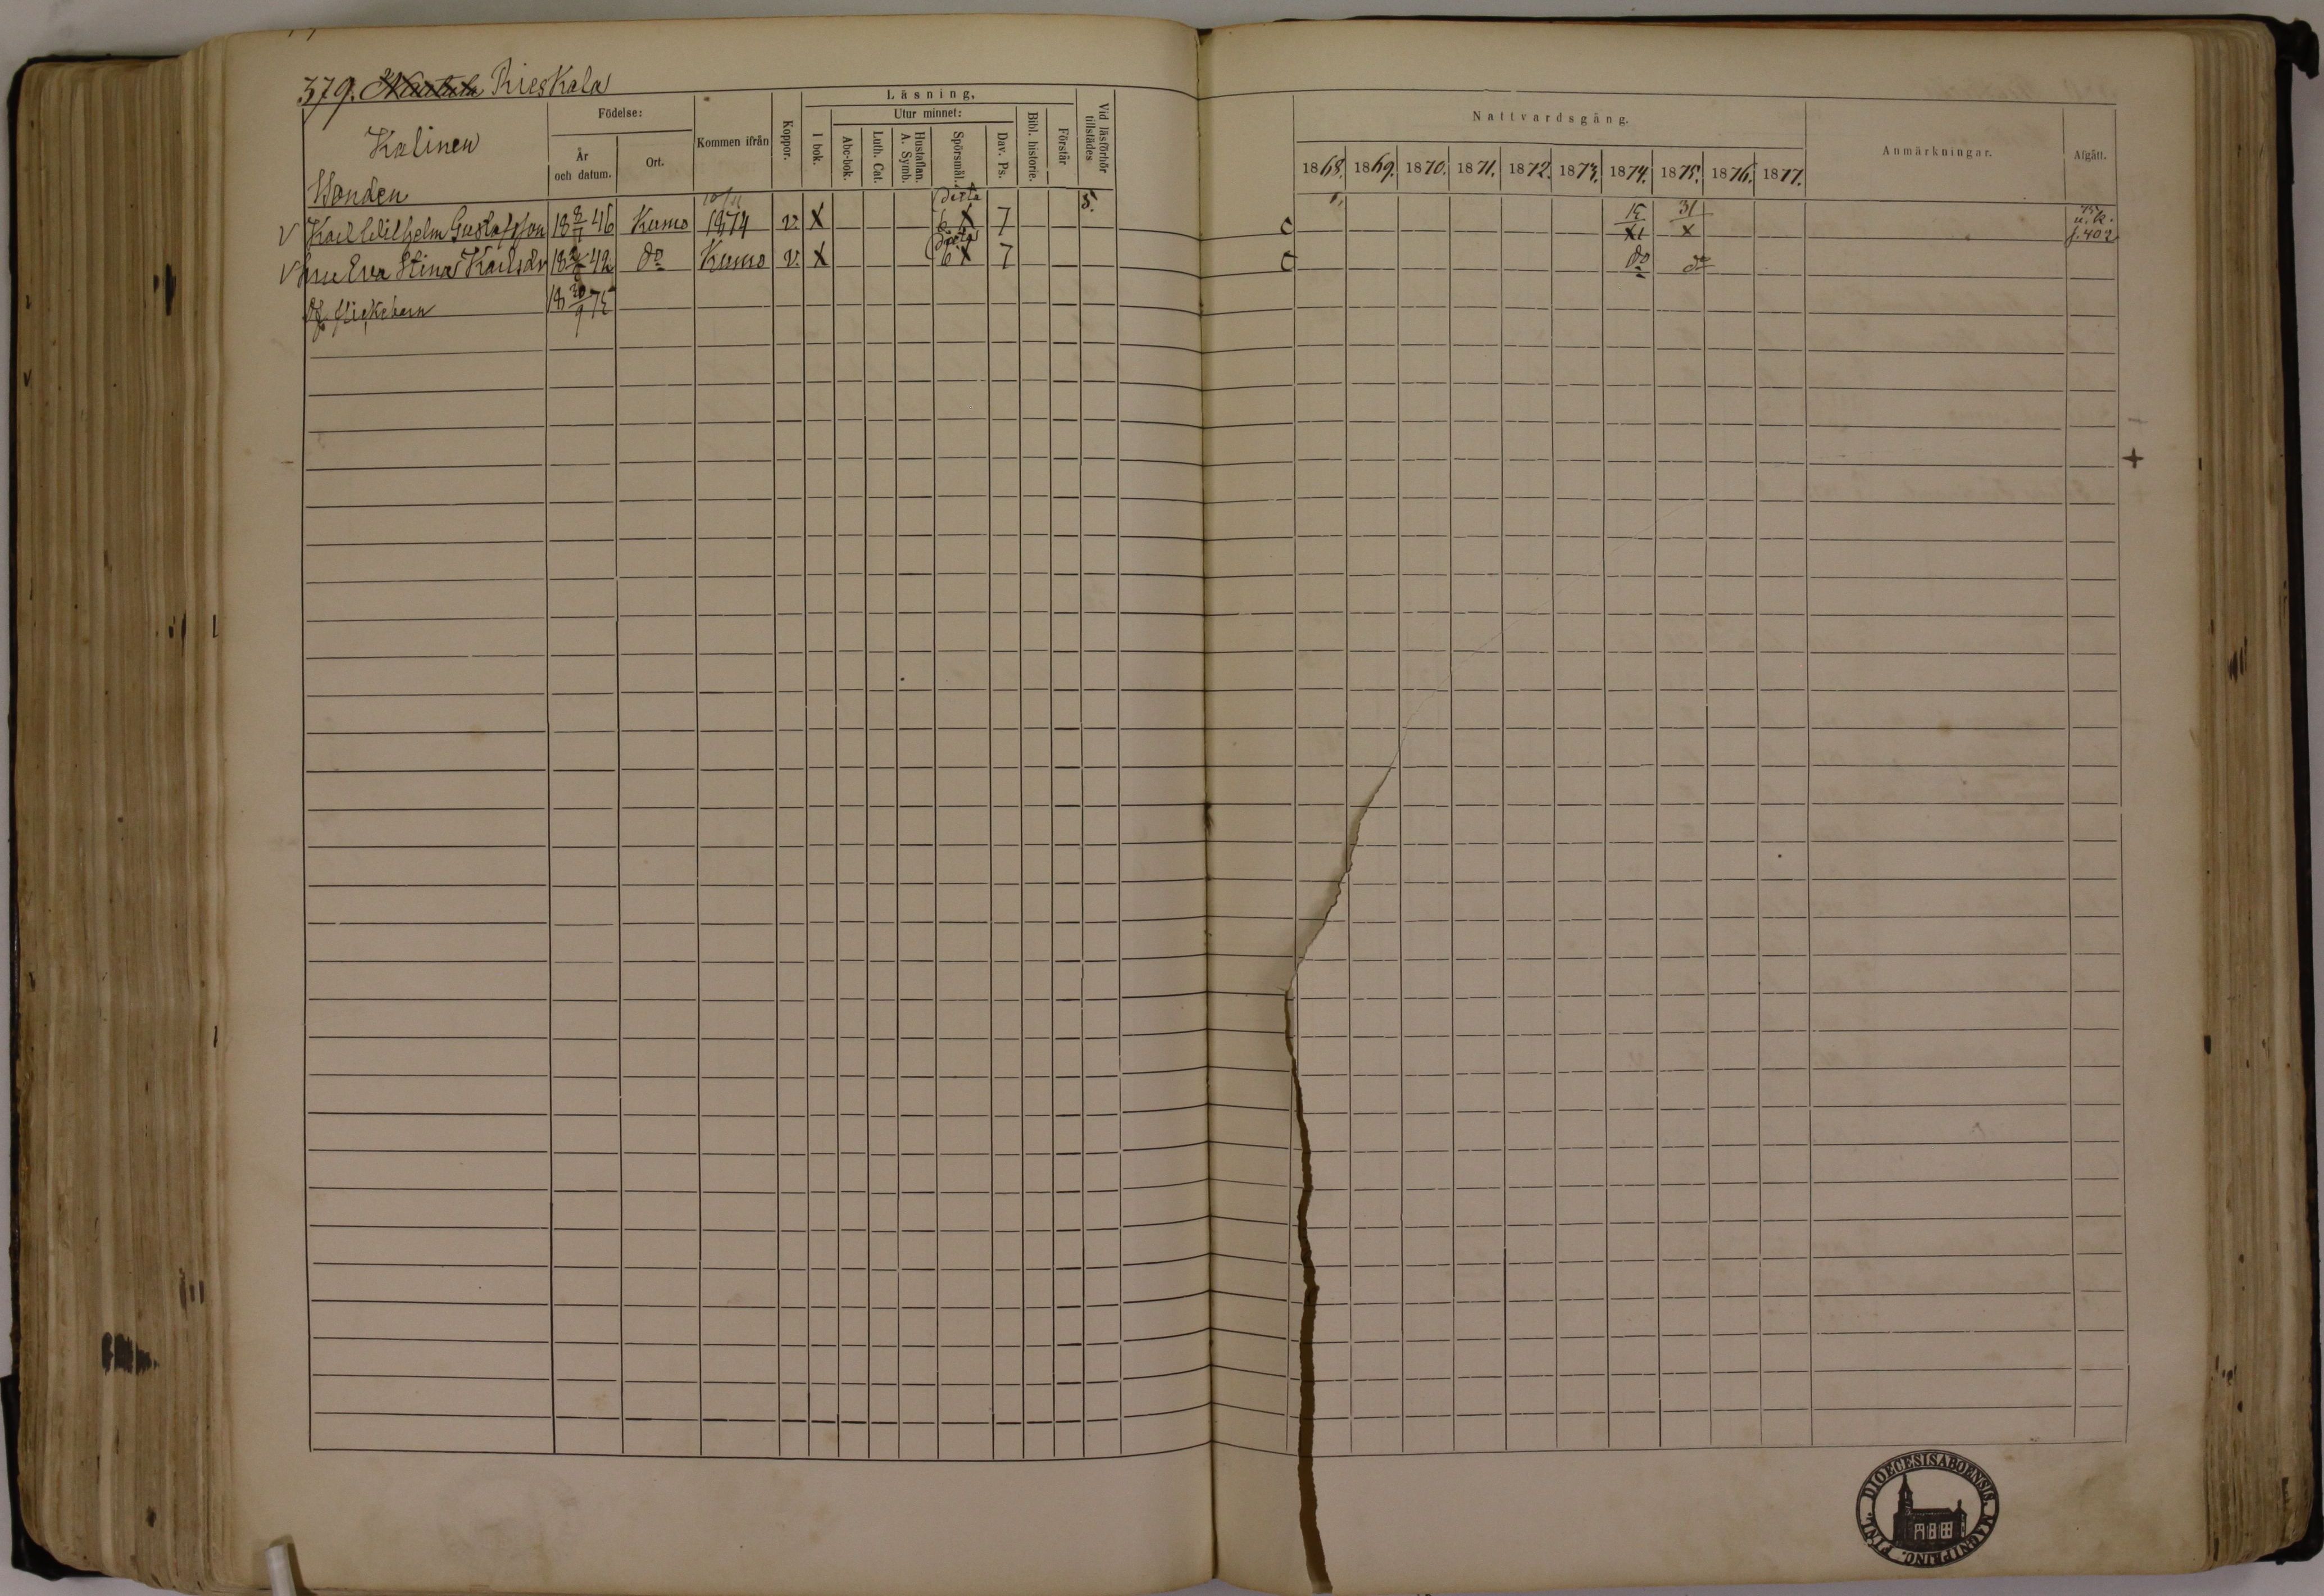 379. Rieskala
Kalinen
Bonden
Födelse:
År och datum.
Ort.
Kommen ifrån
Koppor.
Läsning.
I bok.
Utur minnet:
Abc-bok.
Luth. Cat.
Hustaflan. A. Symb.
Spörsmål.
Dav. Ps.
Bibl. historie.
Förstår
Vid läsförhör tillstädes
Nattvardsgång.
1868. 1869. 1870. 1871. 1872. 1873. 1874. 1875. 1876. 1877.
Anmärkningar.
Afgått.
v Karl Wilhelm Gustafsson 18 8/7 46 Kumo 10/11 1874 v. X 6 X 7 5. 15/XI 31/X u.k. f. 402
v Hru Eva Stina Karlsdr 42 do Kumo v. X 6 X 7 do do
Df flickebarn 18 20/9 75
DIOECESIS ABOENSIS. MAGNI PRINC. FINL.